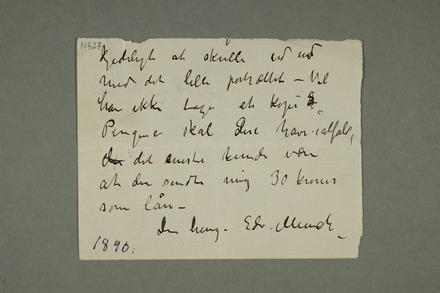 N527
kjedeligt at skulle ud
med det lille portrættet – Vil
han ikke tage et kopi
Pengene skal Dere have ialfald,
det eneste kunde være
at du sendte mig 30 kroner
som lån –
Edv. Munch
1890.